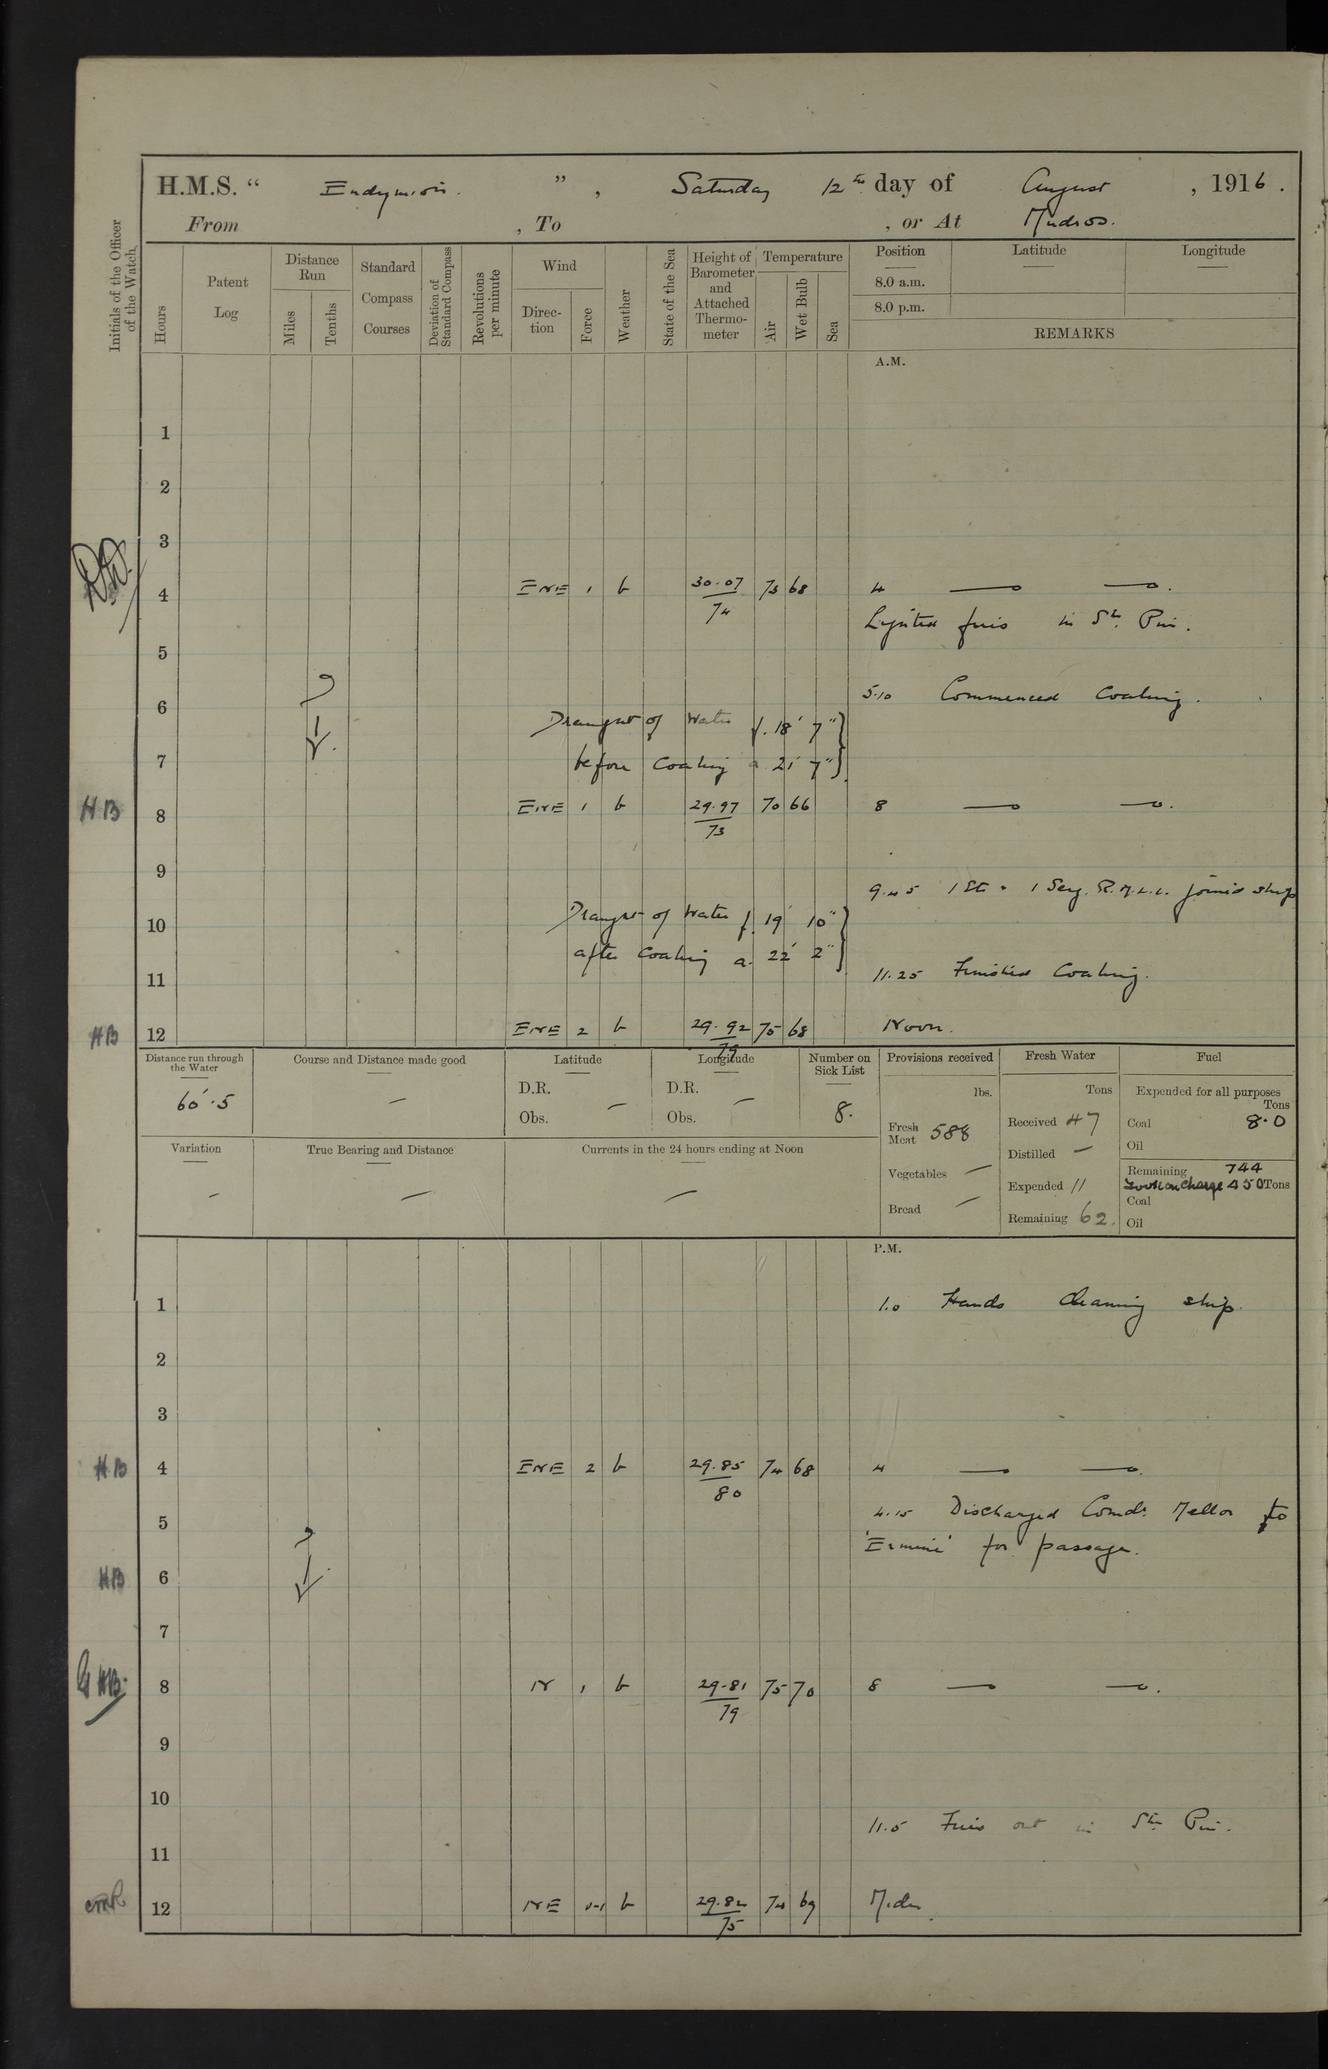 H.M.S. “ Endymion. ” , Saturday 12th day of August , 1916 .
From , To , or At Mudros.
Initials of the Officer of the Watch.
Hours
Patent Log
Distance Run
Miles
Tenths
Standard Compass Courses
Deviation of Standard Compass
Revolutions per minute
Wind
Direction
Force
Weather
State of the Sea
Height of Barometer and Attached Thermometer
Temperature
Air
Wet Bulb
Sea
Position Latitude Longitude
8.0 a.m.
8.0 p.m.
REMARKS
A.M.
1
2
3
4 ENE 1 b 30.07/74 73 68 4 — —.
Lighted fires in St. Pin.
5
5.10 Commenced Coaling.
6
Draught of Water f. 18' 7"
7
before Coaling a 21' 7"
HB 8 ENE 1 b 29.97/73 70 66 8 — —.
9
9.45 1 St. 1 Serg. R.M.L.I. joined ship
10
Draught of Water f. 19' 10"
after Coaling a. 22' 2"
11
11.25 Finished Coaling.
HB 12 ENE 2 b 29.92/79 75 68 Noon.
Distance run through the Water
60'.5
Course and Distance made good
—
Latitude
D.R.
Obs. —
Longitude
D.R.
Obs. —
Number on Sick List
8.
Provisions received
lbs.
Fresh Meat 588
Vegetables —
Bread —
Fresh Water
Tons
Received 47
Distilled —
Expended 11
Remaining 62.
Fuel
Expended for all purposes
Tons
Coal 8.0
Oil
Remaining 744
on Charge 450 Tons
Coal
Oil
Variation
—
True Bearing and Distance
—
Currents in the 24 hours ending at Noon
—
P.M.
1 1.0 Hands Cleaning ship.
2
3
HB 4 ENE 2 b 29.85/80 74 68 4 — —.
4.15 Discharged Comdr. Mellor to
5
'Ermine' for passage.
HB 6
7
HB. 8 N 1 b 29.81/79 75 70 8 — —.
9
10
11.5 Fires out in St. Pin.
11
12 NE 0-1 b 29.82/75 74 69 Midn